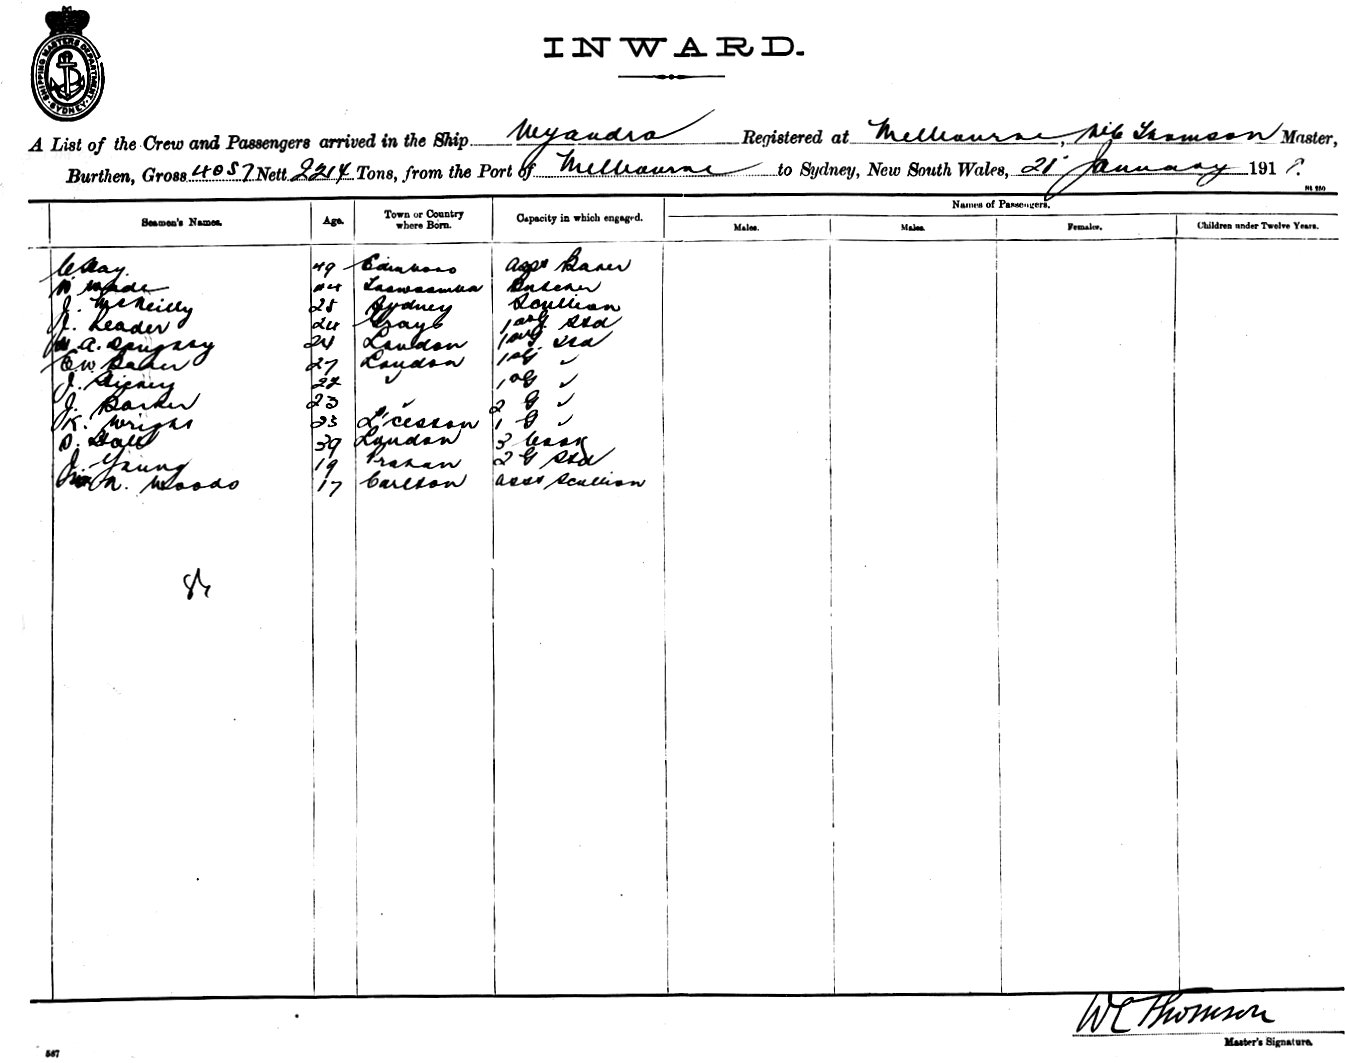 SHIPPING MASTERS DEPARTMENT SYDNEY
INWARD.
A List of the Crew and Passengers arrived in the Ship Wyandra Registered at Melbourne, WC Thomson Master,
Burthen, Gross 4057 Nett 2214 Tons, from the Port of Melbourne to Sydney, New South Wales, 21 January 191
Seamen's Names. Age. Town or Country where Born. Capacity in which engaged. Names of Passengers.
Males. Males. Females. Children under Twelve Years.
C Hay 49 asst Baker
44 Toowoomba Butcher
J. McNeilly 25 Sydney Scullion
J. Leader 24 Grays Std
A. 24 London Std
E W Baker 27 London 1 G ✓
J. 22 ✓ 1 G ✓
J. Barker 23 ✓ 2 G ✓
K. Wright 23 L'ceston 1 G ✓
D. 39 London 3 Cook
J. Young 19 Prahan 2 G Std
Woods 17 Carlton asst Scullion
WC Thomson
Master's Signature.
567